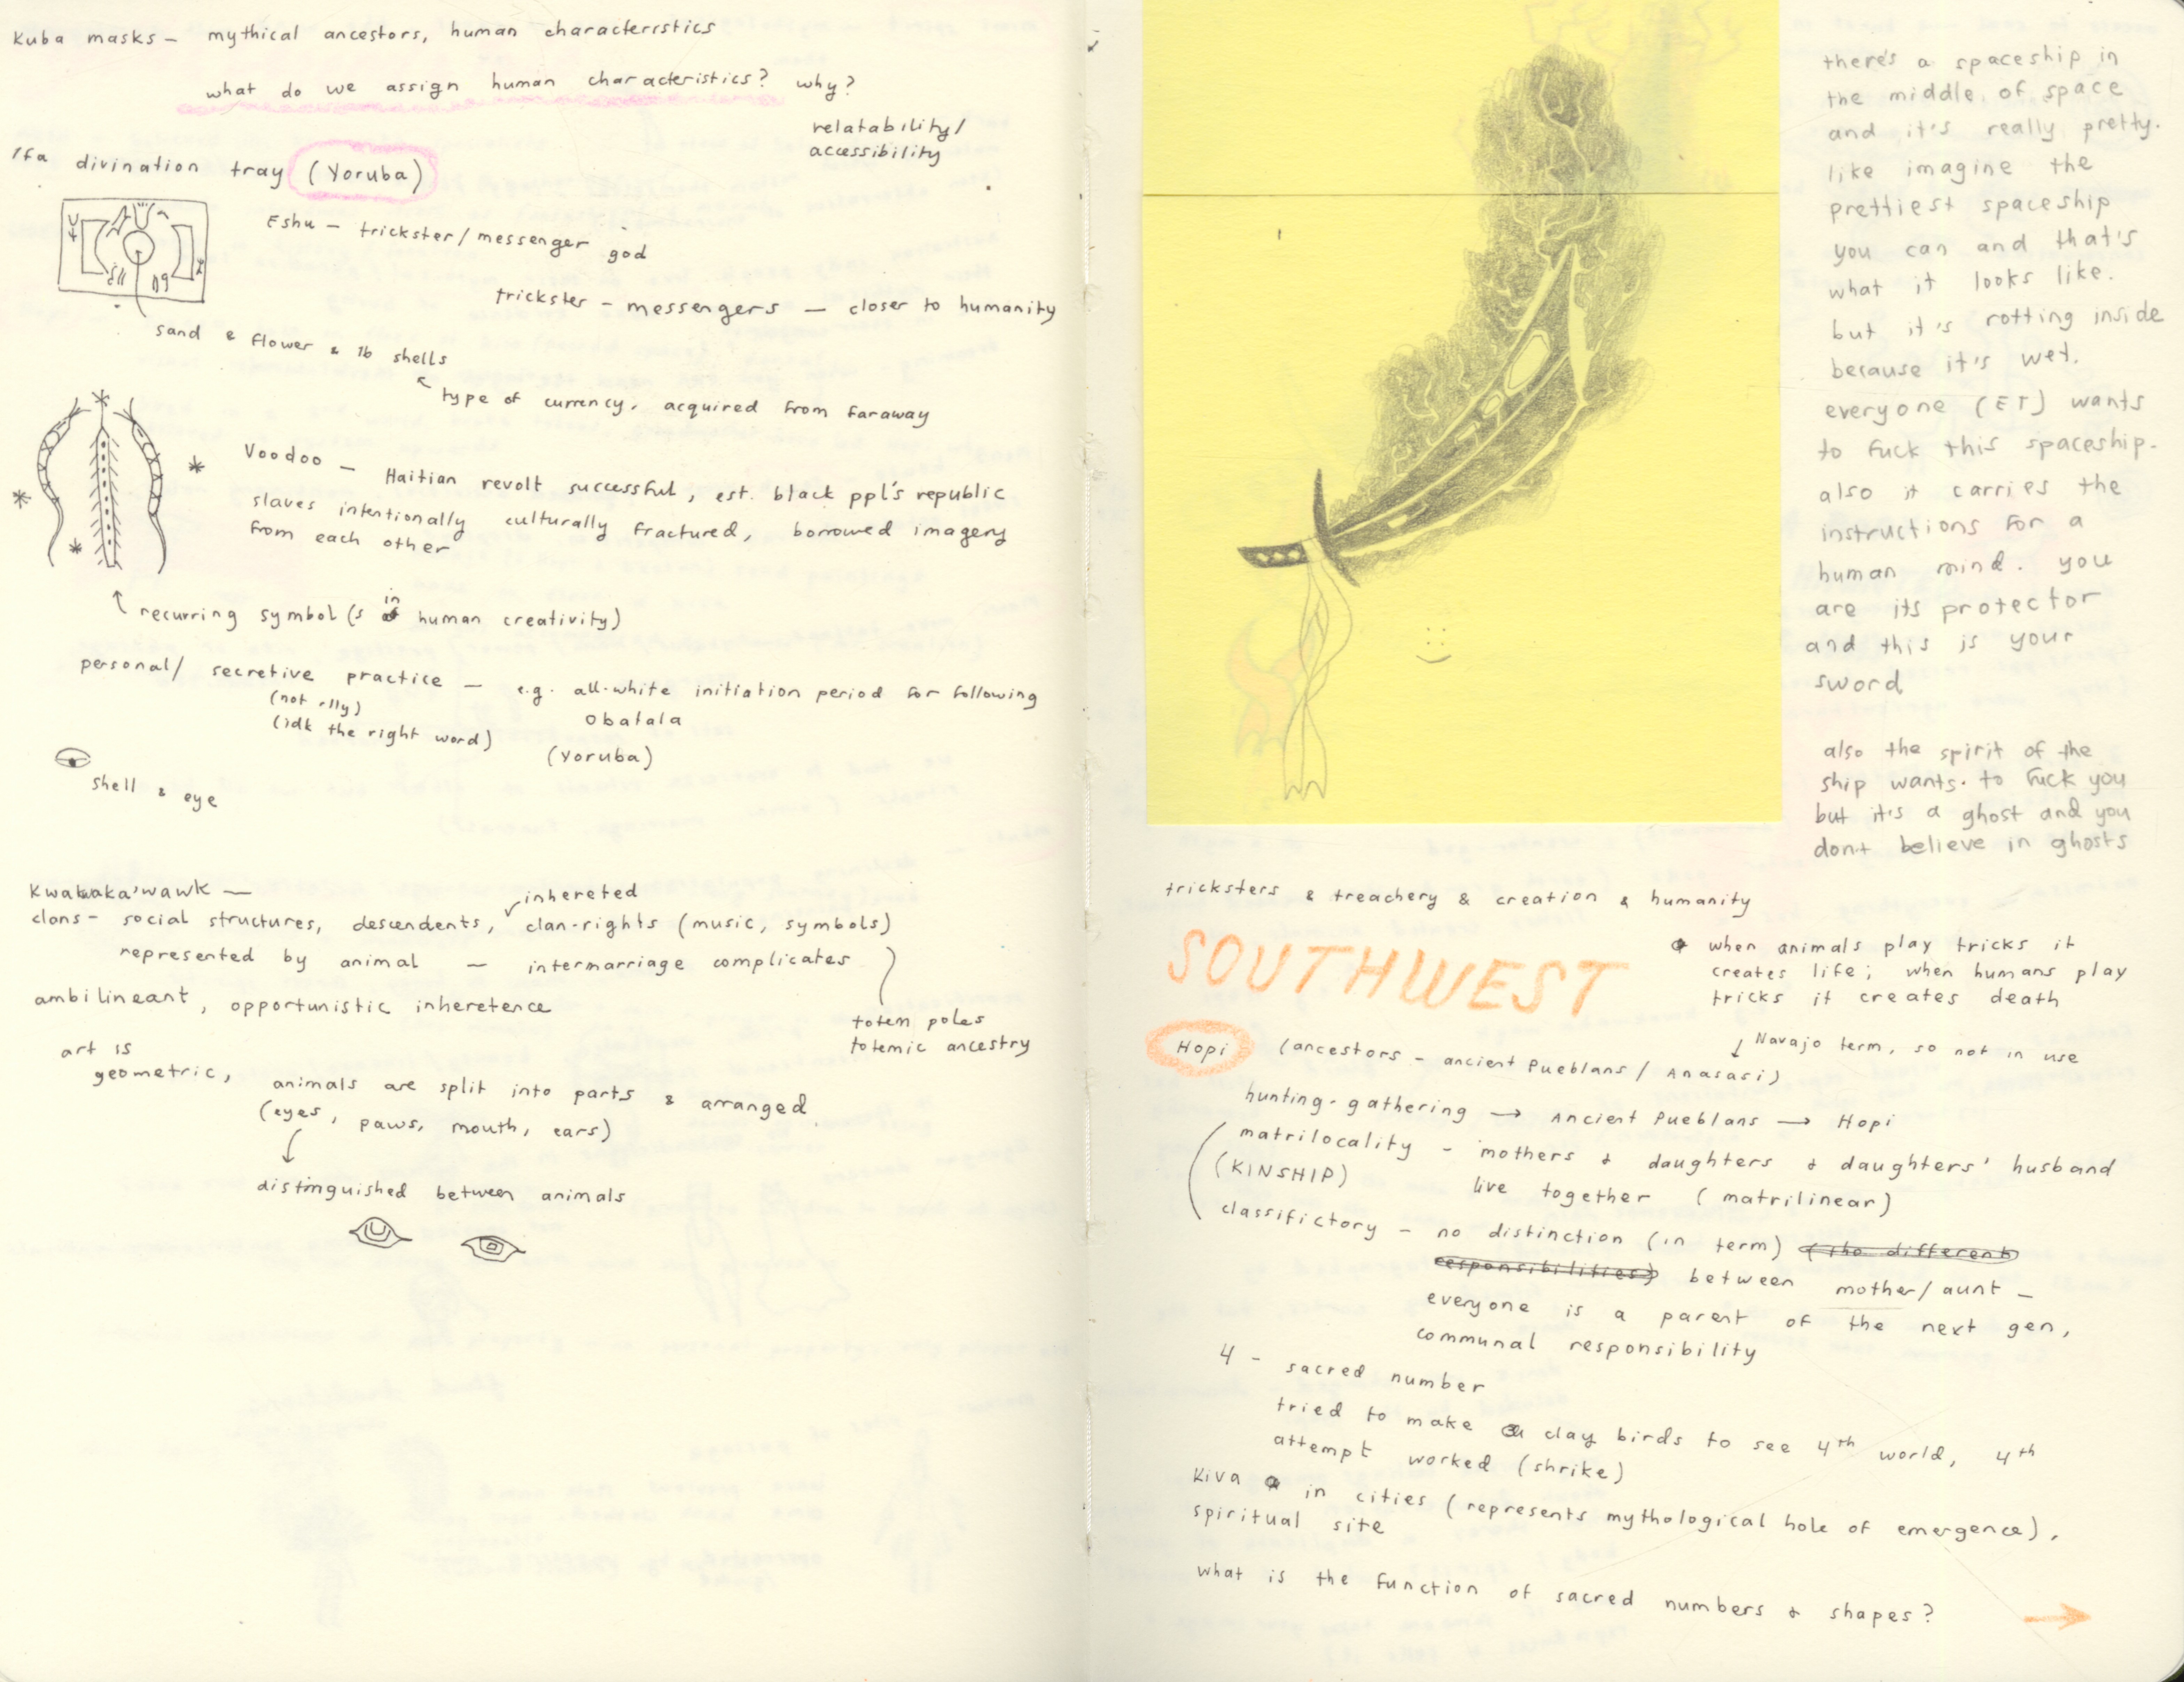 Kuba masks - mythical ancestors, human characterrstics
what do we assign human characteristics? why?
relatability/
accessibility
Ifa divination tray (Yoruba)
Eshu - trickster/messenger god
trickster - messengers - closer to humanity
sand & flower & 16 shells
type of currency, acquired from faraway
Voodoo - Haitian revolt successful, est. black ppl's republic
slaves intentionally culturally fractured, borrowed imagery
from each other
recurring symbol (s in human creativity)
personal/ secretive practice - e.g. all-white initiation period for following
(not rlly)
(idk the right word)
Obatala
(Yoruba)
shell & eye
Kwakwaka'wawk -
inhereted
clans - social structures, descendents, clan-rights (music, symbols)
represented by animal - intermarriage complicates
ambilineant, opportunistic inheretence
totem poles
totemic ancestry
art is
geometric, animals are split into parts & arranged
(eyes, paws, mouth, ears)
distinguished between animals
there's a spaceship in
the middle of space
and it's really pretty.
like imagine the
prettiest spaceship
you can and that's
what it looks like.
but it's rotting inside
because it's wet.
everyone (ET) wants
to fuck this spaceship.
also it carries the
instructions for a
human mind. you
are its protector
and this is your
sword
also the spirit of the
ship wants to fuck you
but it's a ghost and you
don't believe in ghosts
tricksters & treachery & creation & humanity
SOUTHWEST
when animals play tricks it
creates life; when humans play
tricks it creates death
Navajo term, so not in use
Hopi (ancestors - ancient Pueblans / Anasasi)
hunting-gathering → Ancient Pueblans → Hopi
matrilocality - mothers & daughters & daughters' husband
(KINSHIP) live together (matrilinear)
classifictory - no distinction (in term) (tho different
responsibilities) between mother/aunt -
everyone is a parent of the next gen,
communal responsibility
4 - sacred number
tried to make clay birds to see 4th world, 4th
attempt worked (shrike)
Kiva in cities (represents mythological hole of emergence),
spiritual site
what is the function of sacred numbers & shapes?